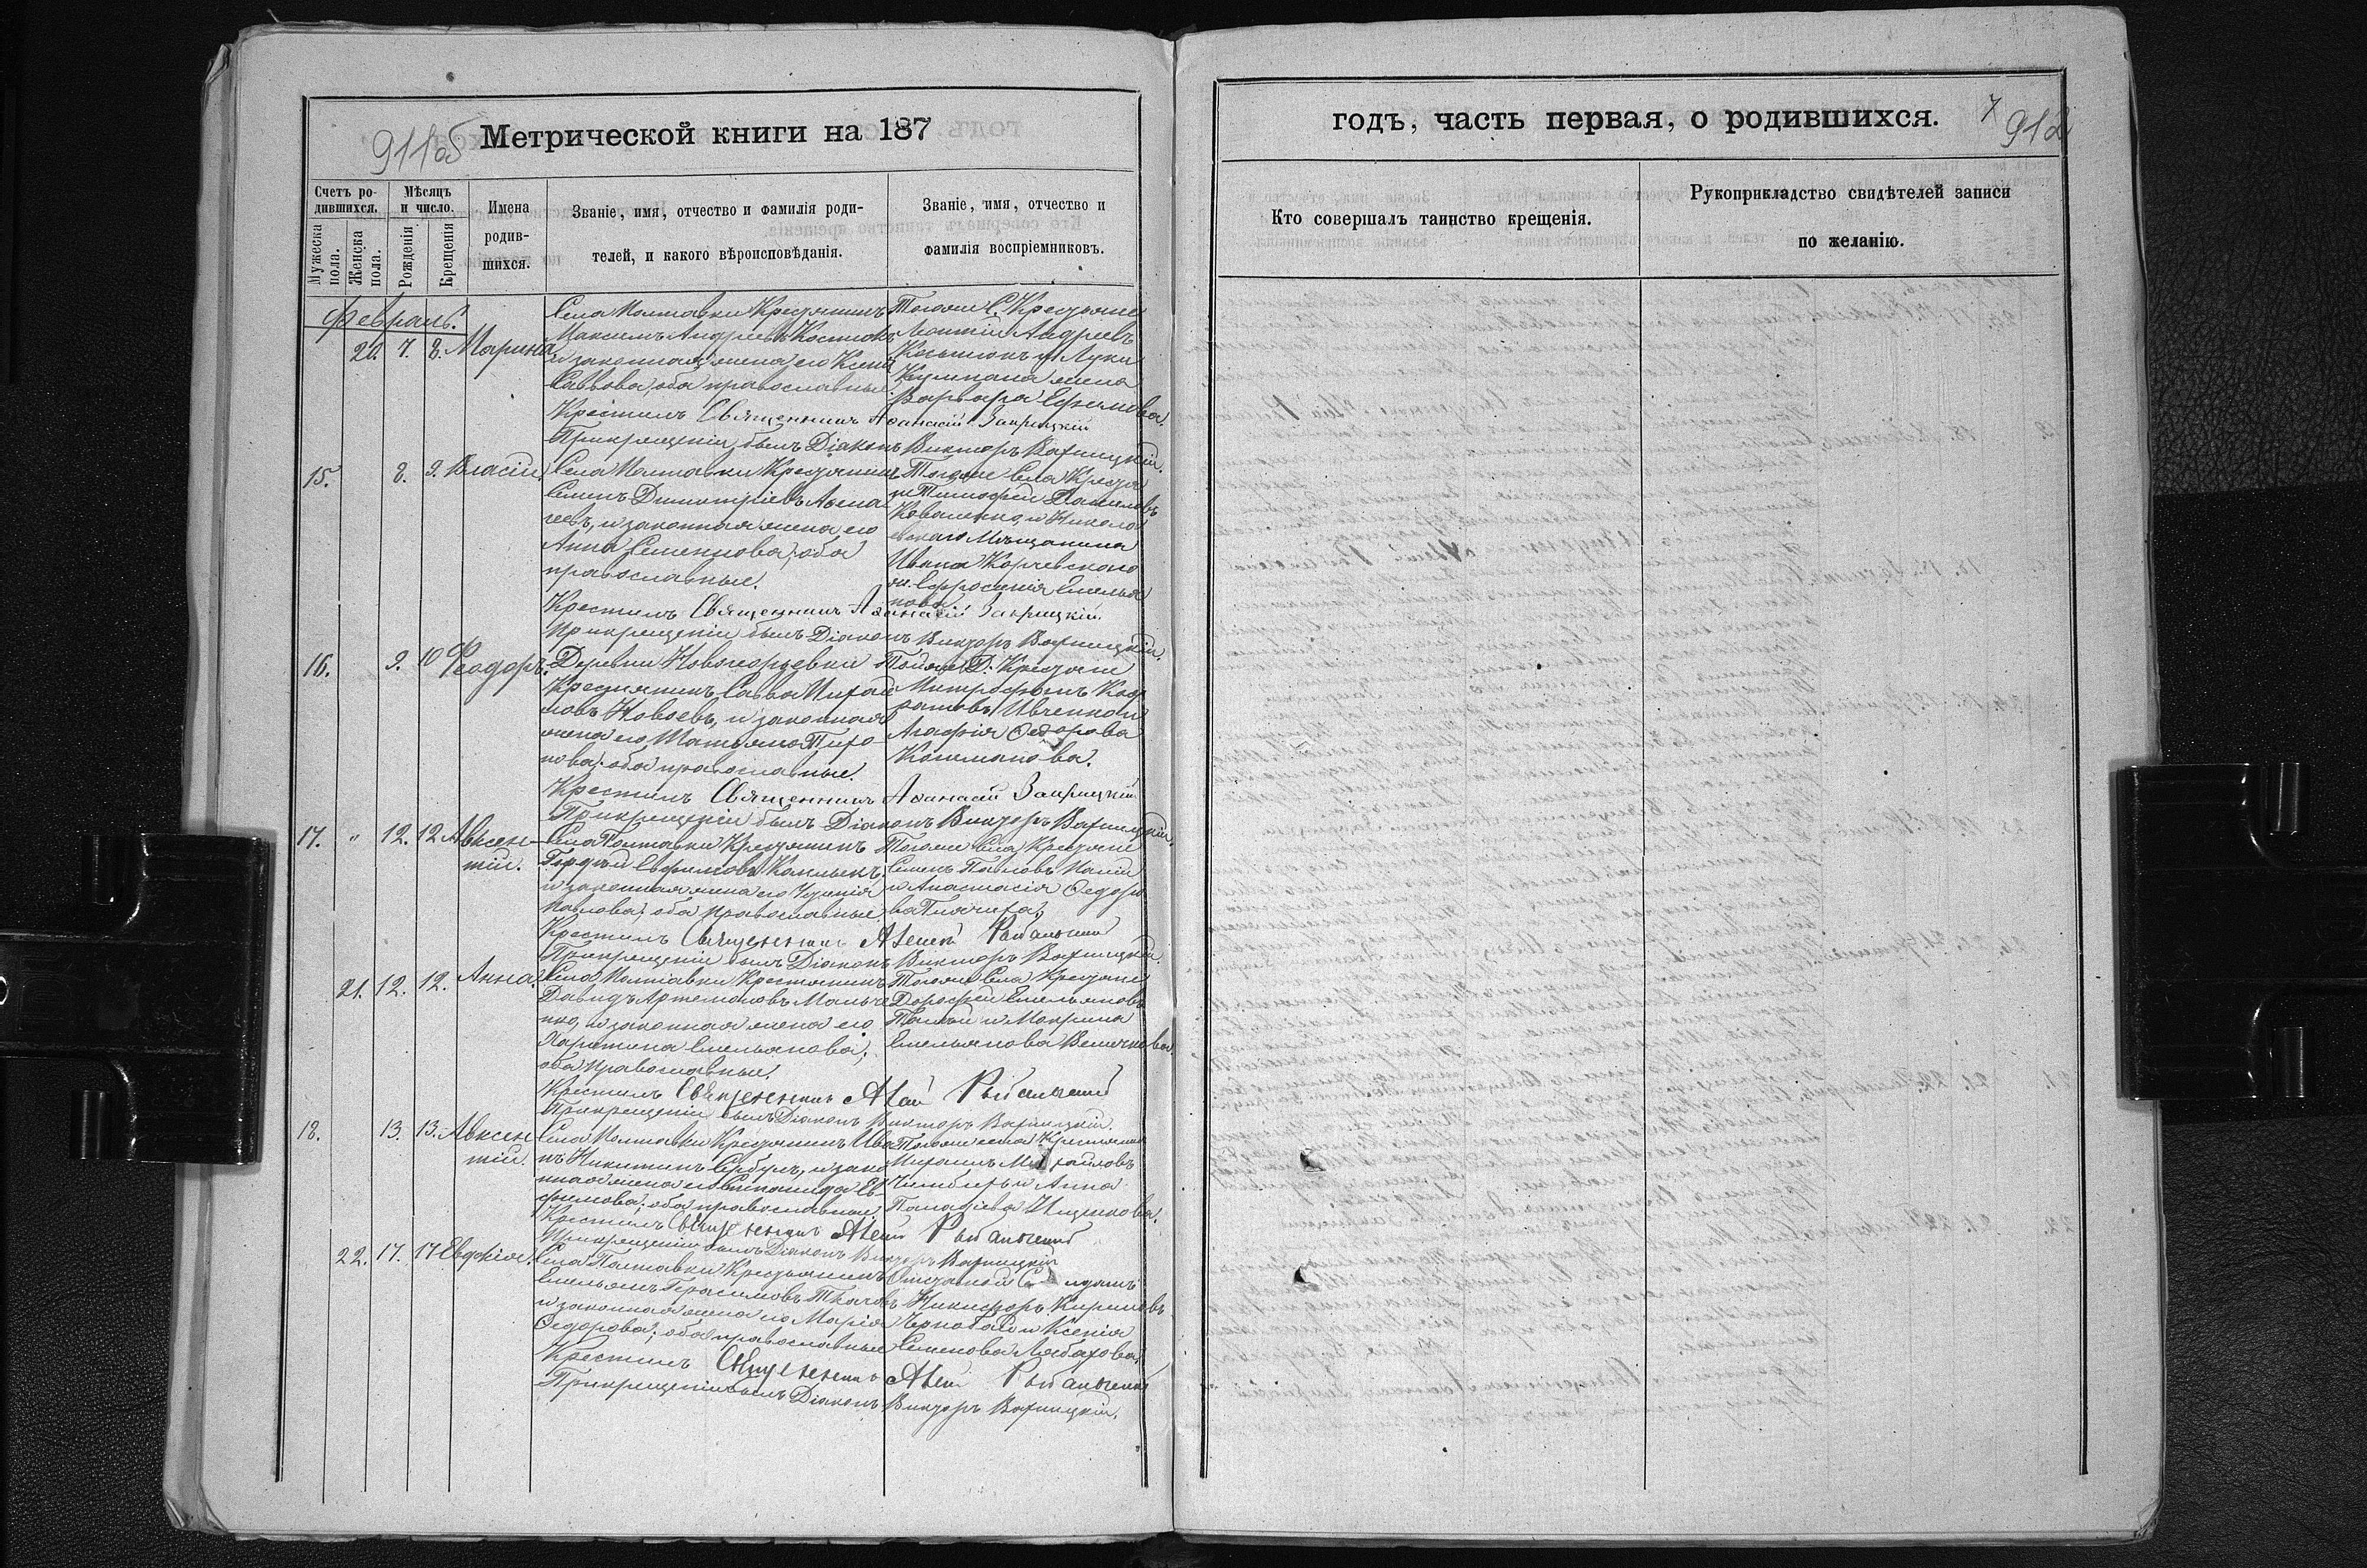 911об
Метрической книги на 187
Счетъ ро-
дившихся.
Мѣсяцъ
и число.
Мужеска пола.
Женска пола.
Рожденія
Крещенія
Имена
родив-
шихся.
Званіе, имя, отчество и фамилія роди-
телей, и какого вѣроисповѣданія.
Званіе, имя, отчество и
фамилія воспріемниковъ.
Февраль.
20. 7. 8. Марина
Села Полтавки Крестьянинъ
Максимъ Андреевъ Костюкъ
и законная жена его Ксенія
Саввова, оба православные.
Тогоже С. Крестьяне
Андреевъ
и Луки
жена
Варвара Ефремова.
Крестилъ Священникъ Аѳанасій
При крещеніи былъ Діаконъ Викторъ Варницкій.
15. 8. 9. Власій.
Села Полтавки Крестьянинъ
Семенъ Димитріевъ
и законная жена его
Анна Семенова, оба
православные.
Тогоже Села Кресть
Тимофей Павловъ
Коваленко, и Никола
евскаго Мѣщанина
Ивана Корчевскаго
ж. Ефросинія Емелья
нова.
Крестилъ Священникъ Аѳанасій
При крещеніи былъ Діаконъ Викторъ Варницкій.
16. 9. 10 Ѳеодоръ.
Деревни Новогоржевки
Крестьянинъ Савва Михай
ловъ и законная
жена его Татьяна Тихо
нова; оба православные.
Тойже Д. Крестьяне
Митрофанъ Код
ратовъ Ивченко и
Агафія Ѳедорова
Кошманова.
Крестилъ Священникъ Аѳанасій
При крещеніи былъ Діаконъ Викторъ Варницкій.
17. " 12. 12 Авксен-
тій.
Села Полтавки Крестьянинъ
Гордѣй Ефимовъ
и законная жена его
Павлова; оба православные.
Тогоже Села Крестьяне
Семенъ Павловъ
и Анастасія Ѳедоро
ва
Крестилъ Священникъ Алексѣй Рыбальскій
При крещеніи былъ Діаконъ Викторъ Варницкій.
21. 12. 12. Анна.
Села Полтавки Крестьянинъ
Давидъ Артемоновъ
нко, и законная жена его
Харитина Емельянова;
оба православные.
Тогоже Села Крестьяне
Дорофей Емельяновъ
и Макрина
Емельянова
Крестилъ Священникъ Алексѣй Рыбальскій
При крещеніи былъ Діаконъ Викторъ Варницкій.
18. 13. 13. Авксен
тій.
Села Полтавки Крестьянинъ Ива
нъ Никитинъ Сербулъ, и зако
нная жена его Степанида Ев-
фимова; оба православные.
Тогоже села Крестьяне
Михаилъ Михайловъ
и Анна
Паладіева Ищенкова.
Крестилъ Священникъ Алексѣй Рыбальскій
При крещеніи былъ Діаконъ Викторъ Варницкій
22. 17. 17 Евфимія.
Села Полтавки Крестьянинъ
Емельянъ Герасимовъ Ткачовъ
и законная жена его Марія
Ѳедорова; оба православные
Отставной Солдатъ
Никифоръ Кириловъ
Чернобай и Ксенія
Семенова Лябахова.
Крестилъ Священникъ Алексѣй Рыбальскій
При крещеніи былъ Діаконъ Викторъ Варницкій.
7
912
годъ, часть первая, о родившихся.
Кто совершалъ таинство крещенія.
Рукоприкладство свидѣтелей записи
по желанію.